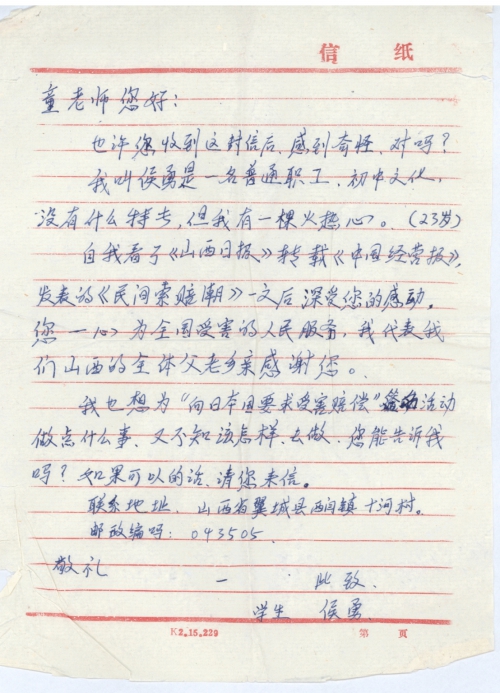 信 纸
童老师您好：
也许您收到这封信后、感到奇怪、对吗？
我叫侯勇是一名普通职工，初中文化，
没有什么特长，但我有一棵火热心。（23岁）
自我看了《山西日报》转载《中国经营报》，
发表的《民间索赔潮》一文后深受您的感动。
您一心为全国受害的人民服务，我代表我
们山西的全体父老乡亲感谢您。
我也想为“向日本国要求受害赔偿”活动
做点什么事、又不知该怎样去做，您能告诉我
吗？如果可以的话、请您来信。
联系地址、山西省翼城县西闫镇十河村。
邮政编码：043505.
敬礼
此致、
学生 侯勇
K2.15.229 第 页